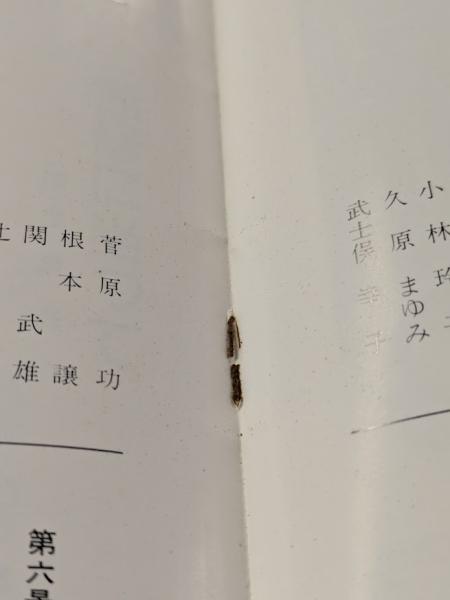 小林玲子
久原まゆみ
武士俣幸子
菅原功
根本讓
関武雄
第六景